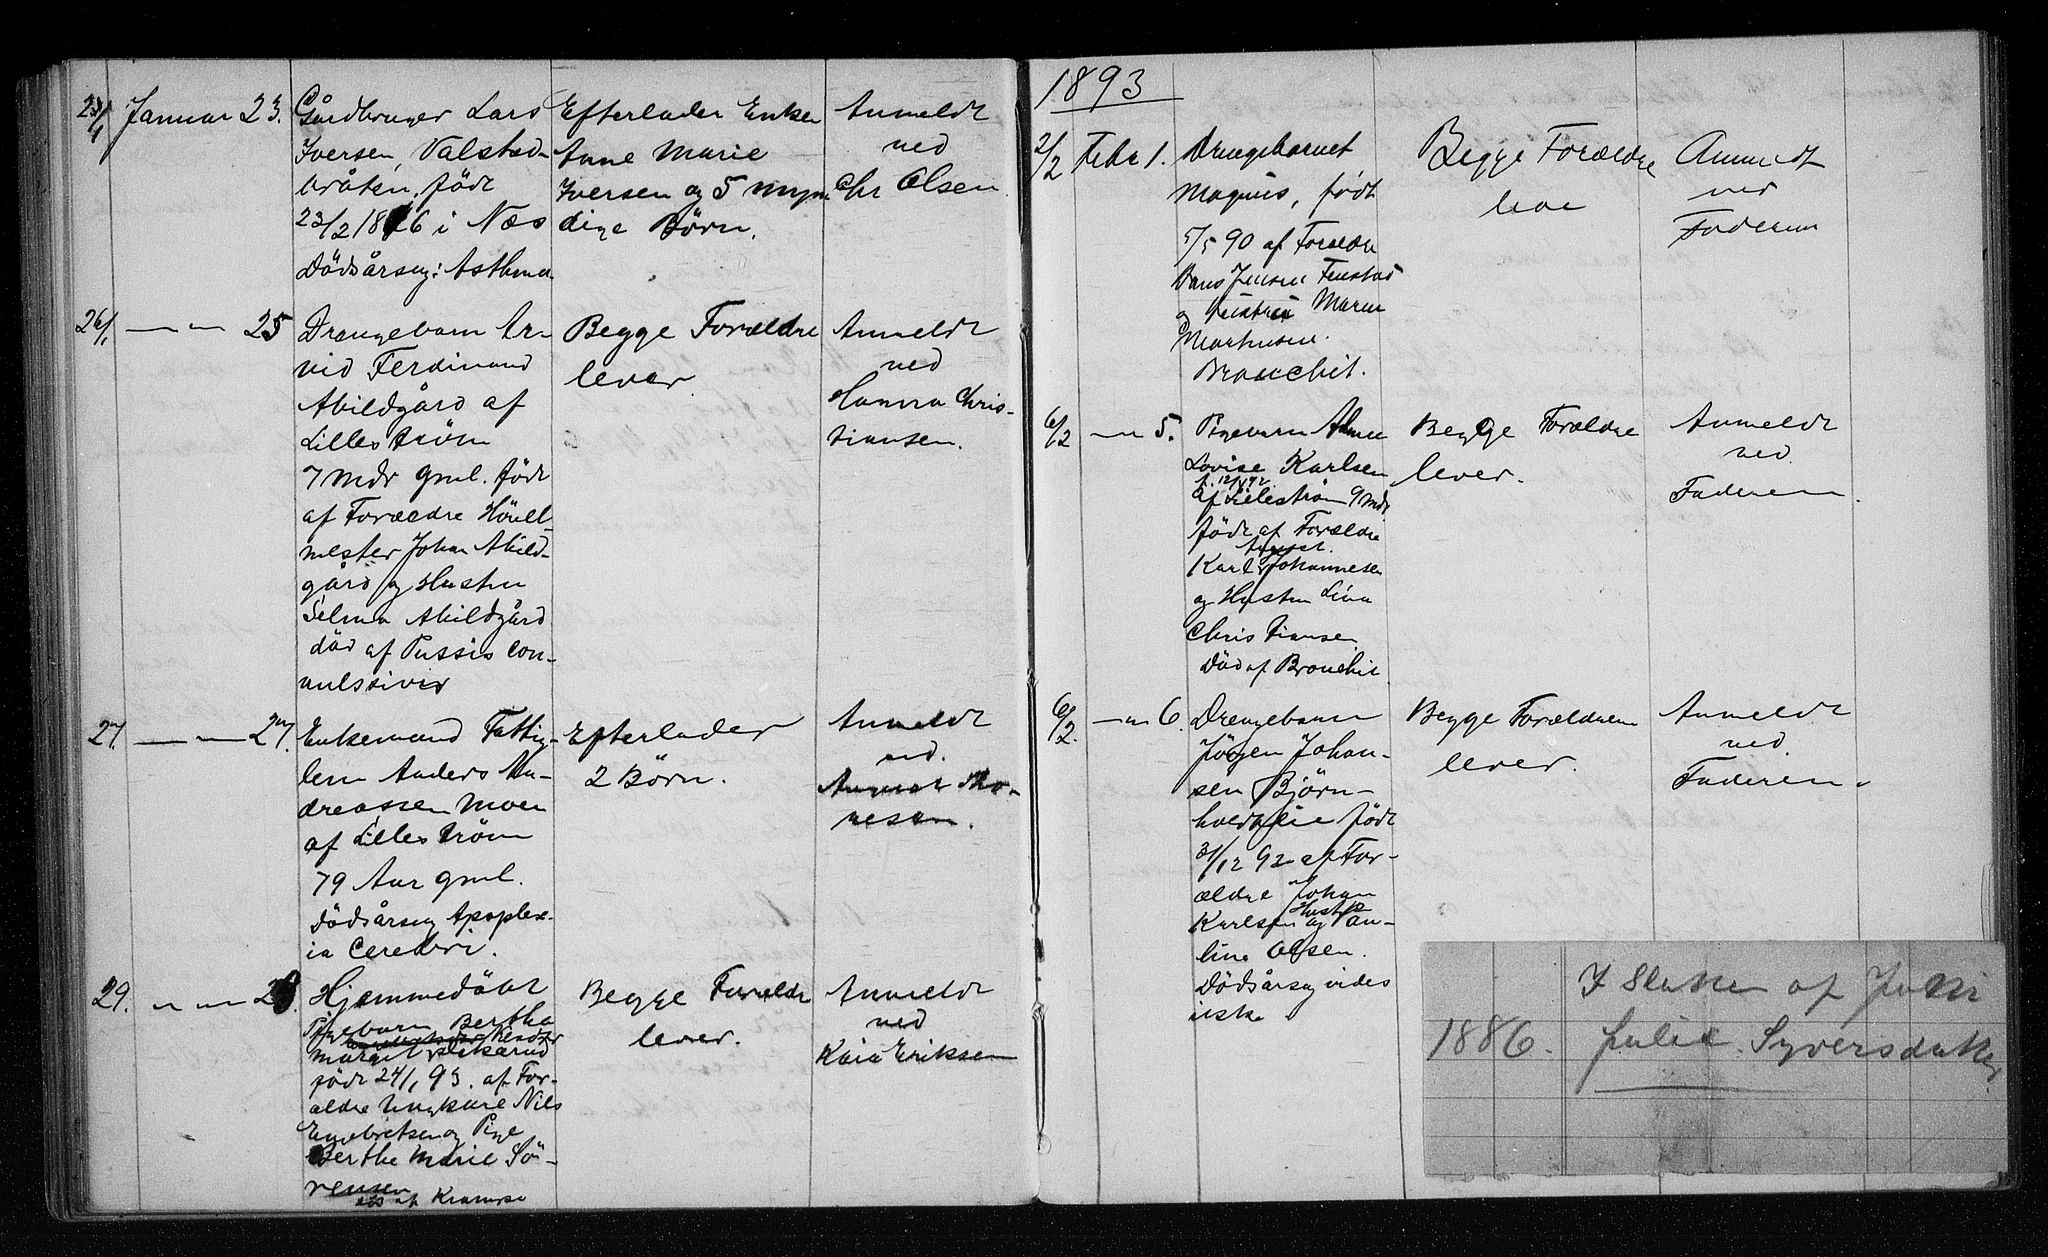 23/1 Januar 23.
Gårdbruger Lars
Iversen, Valstad-
bråten, født
23/2 1816 i Næs
Dødsårsag: Asthma
Efterlader Enken
Anne Marie
Iversen og 5 myn
dige Børn.
Anmeldt
ved
Chr Olsen
26/1 — " — 25
Drengebarn Ar-
vid Ferdinand
Abildgård af
Lillestrøm
7 Mdr gml. født
af Forældre
mester Johan Abild-
gård og Hustru
Selma Abildgård
død af Tussis con-
vulssivis
Begge Forældre
lever
Anmeldt
ved
Hanna Chris-
tiansen.
27. — " — 27.
Enkemand Fattig-
lem Anders An-
dreassen Moen
af Lillestrøm
79 Aar gml.
Dødsårsag Apoplex-
ia Cerebri.
Efterlader
2 Børn.
Anmeldt
ved.
August Tho-
resen.
29. — " — 28.
Hjemmedøbt
Pigebarn Bertha
Margit
født 24/1 93. af For-
ældre Ungkarl Nils
Engebretsen og Pige
Berthe Marie Sö-
rensen
død af Krampe
Begge Forældre
lever.
Anmeldt
ved
Kaia Eriksen
1893
2/2 Febr 1.
Drengebarnet
Magnus, født
5/5 90 af Forældre
Hans Jensen
og Hustru Maren
Mathisen.
Bronchit.
Begge Forældre
leve
Anmeldt
ved
Faderen
6/2 — " 5.
Pigebarn
Lovise Karlsen
af Lillestrøm 9 Mdr
født af Forældre
August.
Karl Johannesen
og Hustru Lina
Christiansen.
Død af Bronchit
Begge Forældre
lever.
Anmeldt
ved.
Faderen.
6/2. — " 6.
Drengebarn
Jörgen Johan-
sen Björn-
født
3/12 92 af For-
ældre Johan
Karlsen og Hustru Pau-
line Olsen.
Dødsårsag vides
ikke
Begge Forældrene
lever.
Anmeldt
ved.
Faderen.
1886.
I Slutten af Juni
Julie Syversdatter